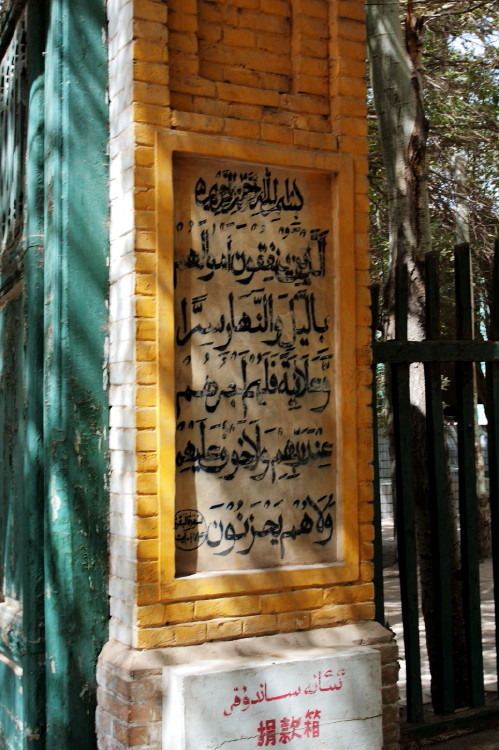 بسم الله الرحمن الرحيم
الَّذِينَ يُنفِقُونَ أَمْوَالَهُم
بِاللَّيْلِ وَالنَّهَارِ سِرًّا
وَّعَلَانِيَةً فَلَهُمْ أَجْرُهُمْ
عِنْدَ رَبِّهِمْ وَلَا خَوْفٌ عَلَيْهِمْ
وَلَا هُمْ يَحْزَنُونَ
ئىئانە ساندۇقى
捐款箱